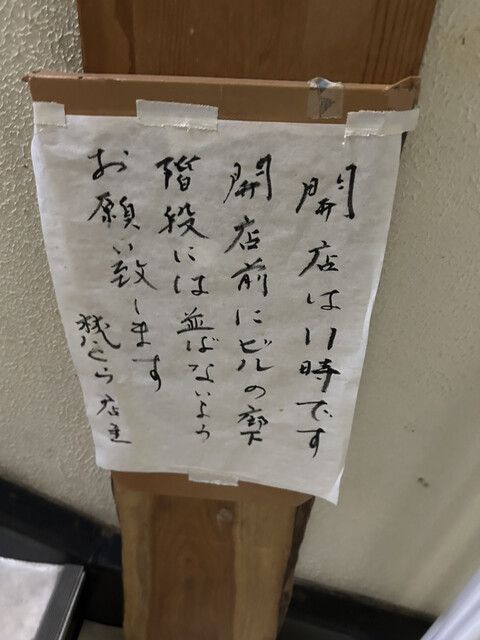 開店は11時です
開店前にビルの廊下
階段には並ばないよう
お願い致します
店主